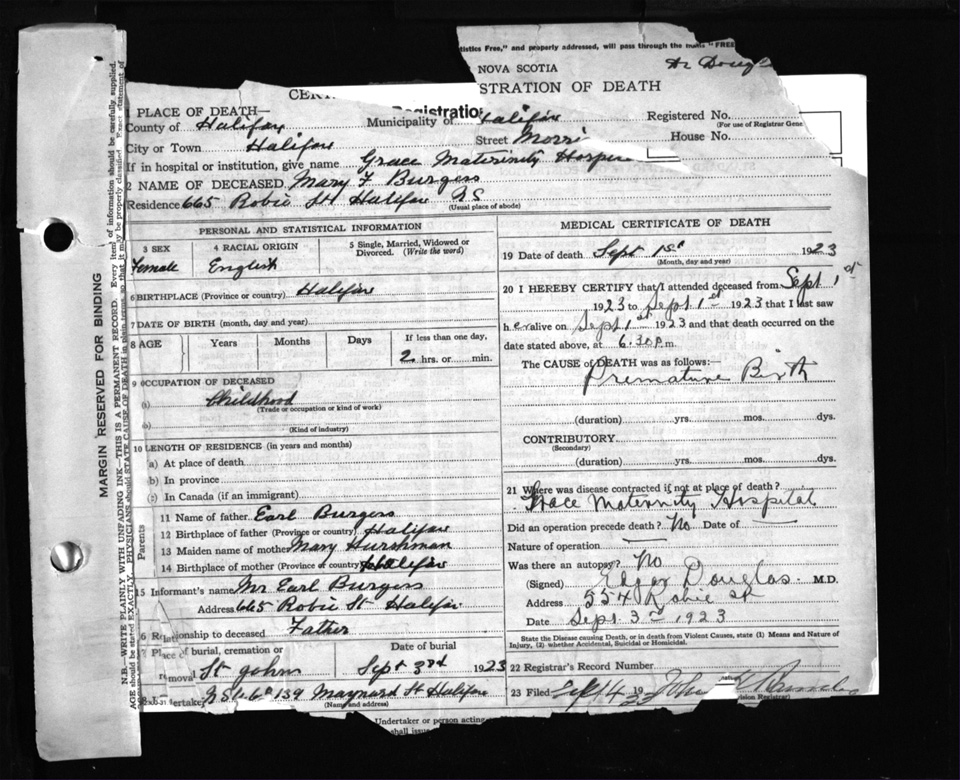 tistics Free," and properly addressed, will pass through the mails "FREE
Dr Dougl
NOVA SCOTIA
CERT STRATION OF DEATH
Registration
1 PLACE OF DEATH—
County of Halifax Municipality of Halifax Registered No.
(For use of Registrar Gene
City or Town Halifax Street Morri House No.
If in hospital or institution, give name Grace Maternity Hospi
2 NAME OF DECEASED Mary F Burgess
Residence 665 Robie St Halifax NS
(Usual place of abode)
PERSONAL AND STATISTICAL INFORMATION
3 SEX 4 RACIAL ORIGIN 5 Single, Married, Widowed or Divorced. (Write the word)
Female English
6 BIRTHPLACE (Province or country) Halifax
7 DATE OF BIRTH (month, day and year)
8 AGE Years Months Days If less than one day,
2 hrs. or min.
9 OCCUPATION OF DECEASED
(a) Childhood
(Trade or occupation or kind of work)
(b)
(Kind of industry)
10 LENGTH OF RESIDENCE (in years and months)
(a) At place of death
(b) In province
(c) In Canada (if an immigrant)
Parents
11 Name of father Earl Burgess
12 Birthplace of father (Province or country) Halifax
13 Maiden name of mother Mary Hurshman
14 Birthplace of mother (Province or country) Halifax
15 Informant's name Mr Earl Burgess
Address 665 Robie St Halifax
16 Relationship to deceased Father
Place of burial, cremation or removal Date of burial
St John Sept 3rd 1923
139 Maynard St Halifax
(Name and address)
Undertaker or person acting
shall issue
MEDICAL CERTIFICATE OF DEATH
19 Date of death Sept 1st 1923
(Month, day and year)
20 I HEREBY CERTIFY that I attended deceased from Sept 1st
1923 to Sept 1st 1923 that I last saw
her alive on Sept 1st 1923 and that death occurred on the
date stated above, at 6:30 p.m.
The CAUSE of DEATH was as follows:—
Premature Birth
(duration) yrs. mos. dys.
CONTRIBUTORY
(Secondary)
(duration) yrs. mos. dys.
21 Where was disease contracted if not at place of death?
Grace Maternity Hospital
Did an operation precede death? No Date of —
Nature of operation —
Was there an autopsy? No
(Signed) Edgar Douglas M.D.
Address 554 Robie St
Date Sept. 3rd 1923
State the Disease causing Death, or in death from Violent Causes, state (1) Means and Nature of
Injury, (2) whether Accidental, Suicidal or Homicidal.
22 Registrar's Record Number
23 Filed Sept 4 1923 John
MARGIN RESERVED FOR BINDING
N.B.—WRITE PLAINLY WITH UNFADING INK—THIS IS A PERMANENT RECORD. Every item of information should be carefully supplied.
AGE should be stated EXACTLY. PHYSICIANS should STATE CAUSE OF DEATH in plain terms, so that it may be properly classified. Exact statement of